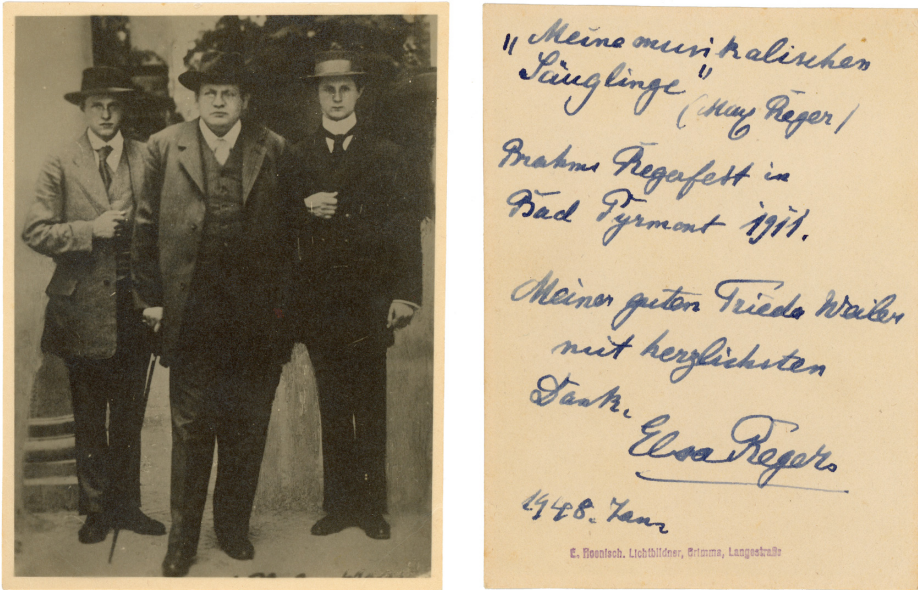 „Meine musikalischen
Säuglinge"
(Max Reger)
Brahms Regerfest in
Bad Pyrmont 1911.
Meiner guten Frieda Weiler
mit herzlichsten
Dank.
Elsa Reger.
1948. Jan.
E. Hoenisch. Lichtbildner, Grimma, Langestraße